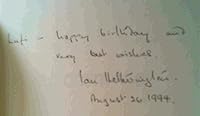 Luti - happy birthday and
very best wishes.
Ian Hetherington.
August 26 1994.